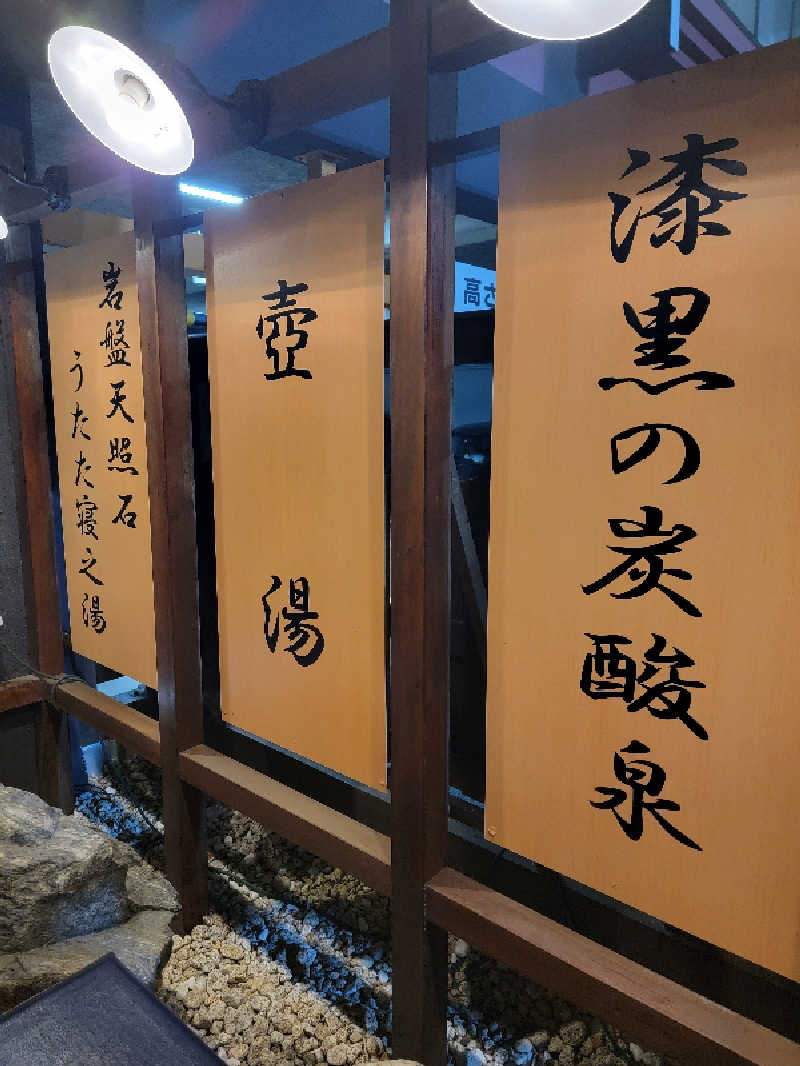 漆黒の炭酸泉
壺湯
岩盤天照石
うたた寝之湯
高さ